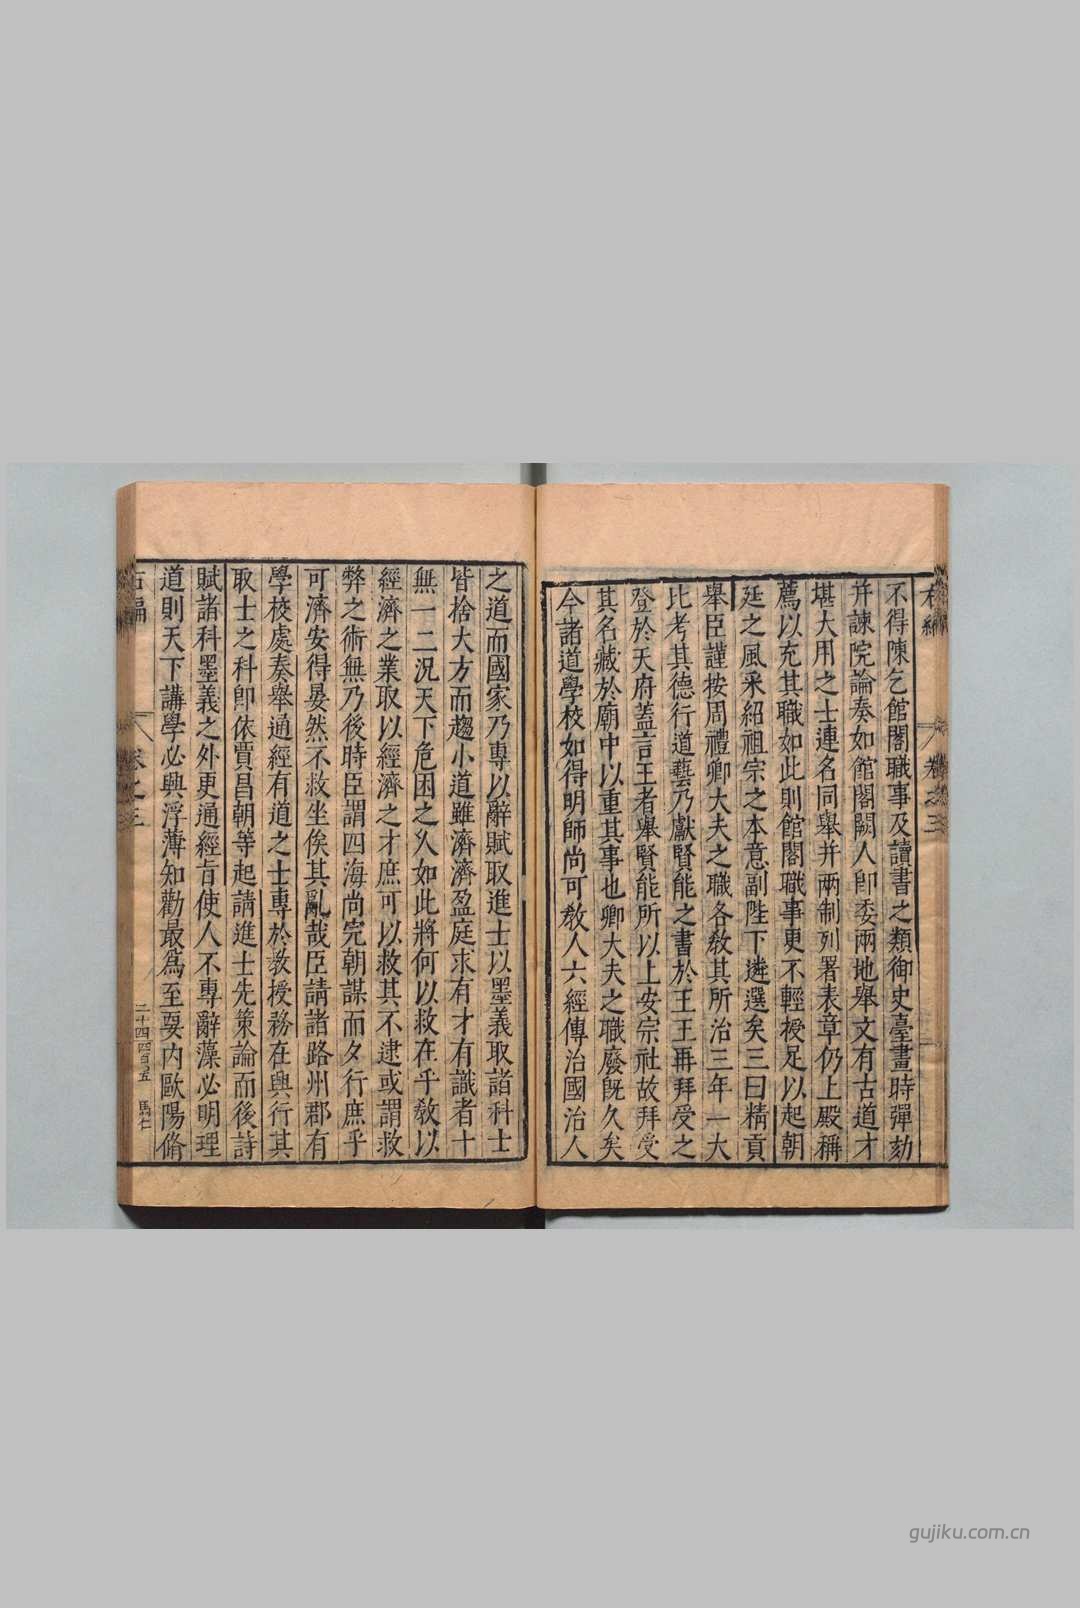 不得陳乞館閣職事及讀書之類御史臺畫時彈劾
并諫院論奏如館閣闕人卽委兩地舉文有古道才
堪大用之士連名同舉并兩制列署表章仍上殿稱
薦以充其職如此則館閣職事更不輕授足以起朝
廷之風采紹祖宗之本意副陛下遴選矣三曰精貢
舉臣謹按周禮卿大夫之職各敎其所治三年一大
比考其德行道藝乃獻賢能之書於王王再拜受之
登於天府蓋言王者舉賢能所以上安宗社故拜受
其名藏於廟中以重其事也卿大夫之職廢旣久矣
今諸道學校如得明師尚可敎人六經傳治國治人
之道而國家乃專以辭賦取進士以墨義取諸科士
皆捨大方而趨小道雖濟濟盈庭求有才有識者十
無一二況天下危困乏人如此將何以救在乎敎以
經濟之業取以經濟之才庶可以救其不逮或謂救
弊之術無乃後時臣謂四海尚完朝謀而夕行庶乎
可濟安得晏然不救坐俟其亂哉臣請諸路州郡有
學校處奏舉通經有道之士專於敎授務在興行其
取士之科卽依賈昌朝等起請進士先策論而後詩
賦諸科墨義之外更通經旨使人不專辭藻必明理
道則天下講學必興浮薄知勸最爲至要內歐陽脩
卷之三
二十四 四百五 馬仁
gujiku.com.cn